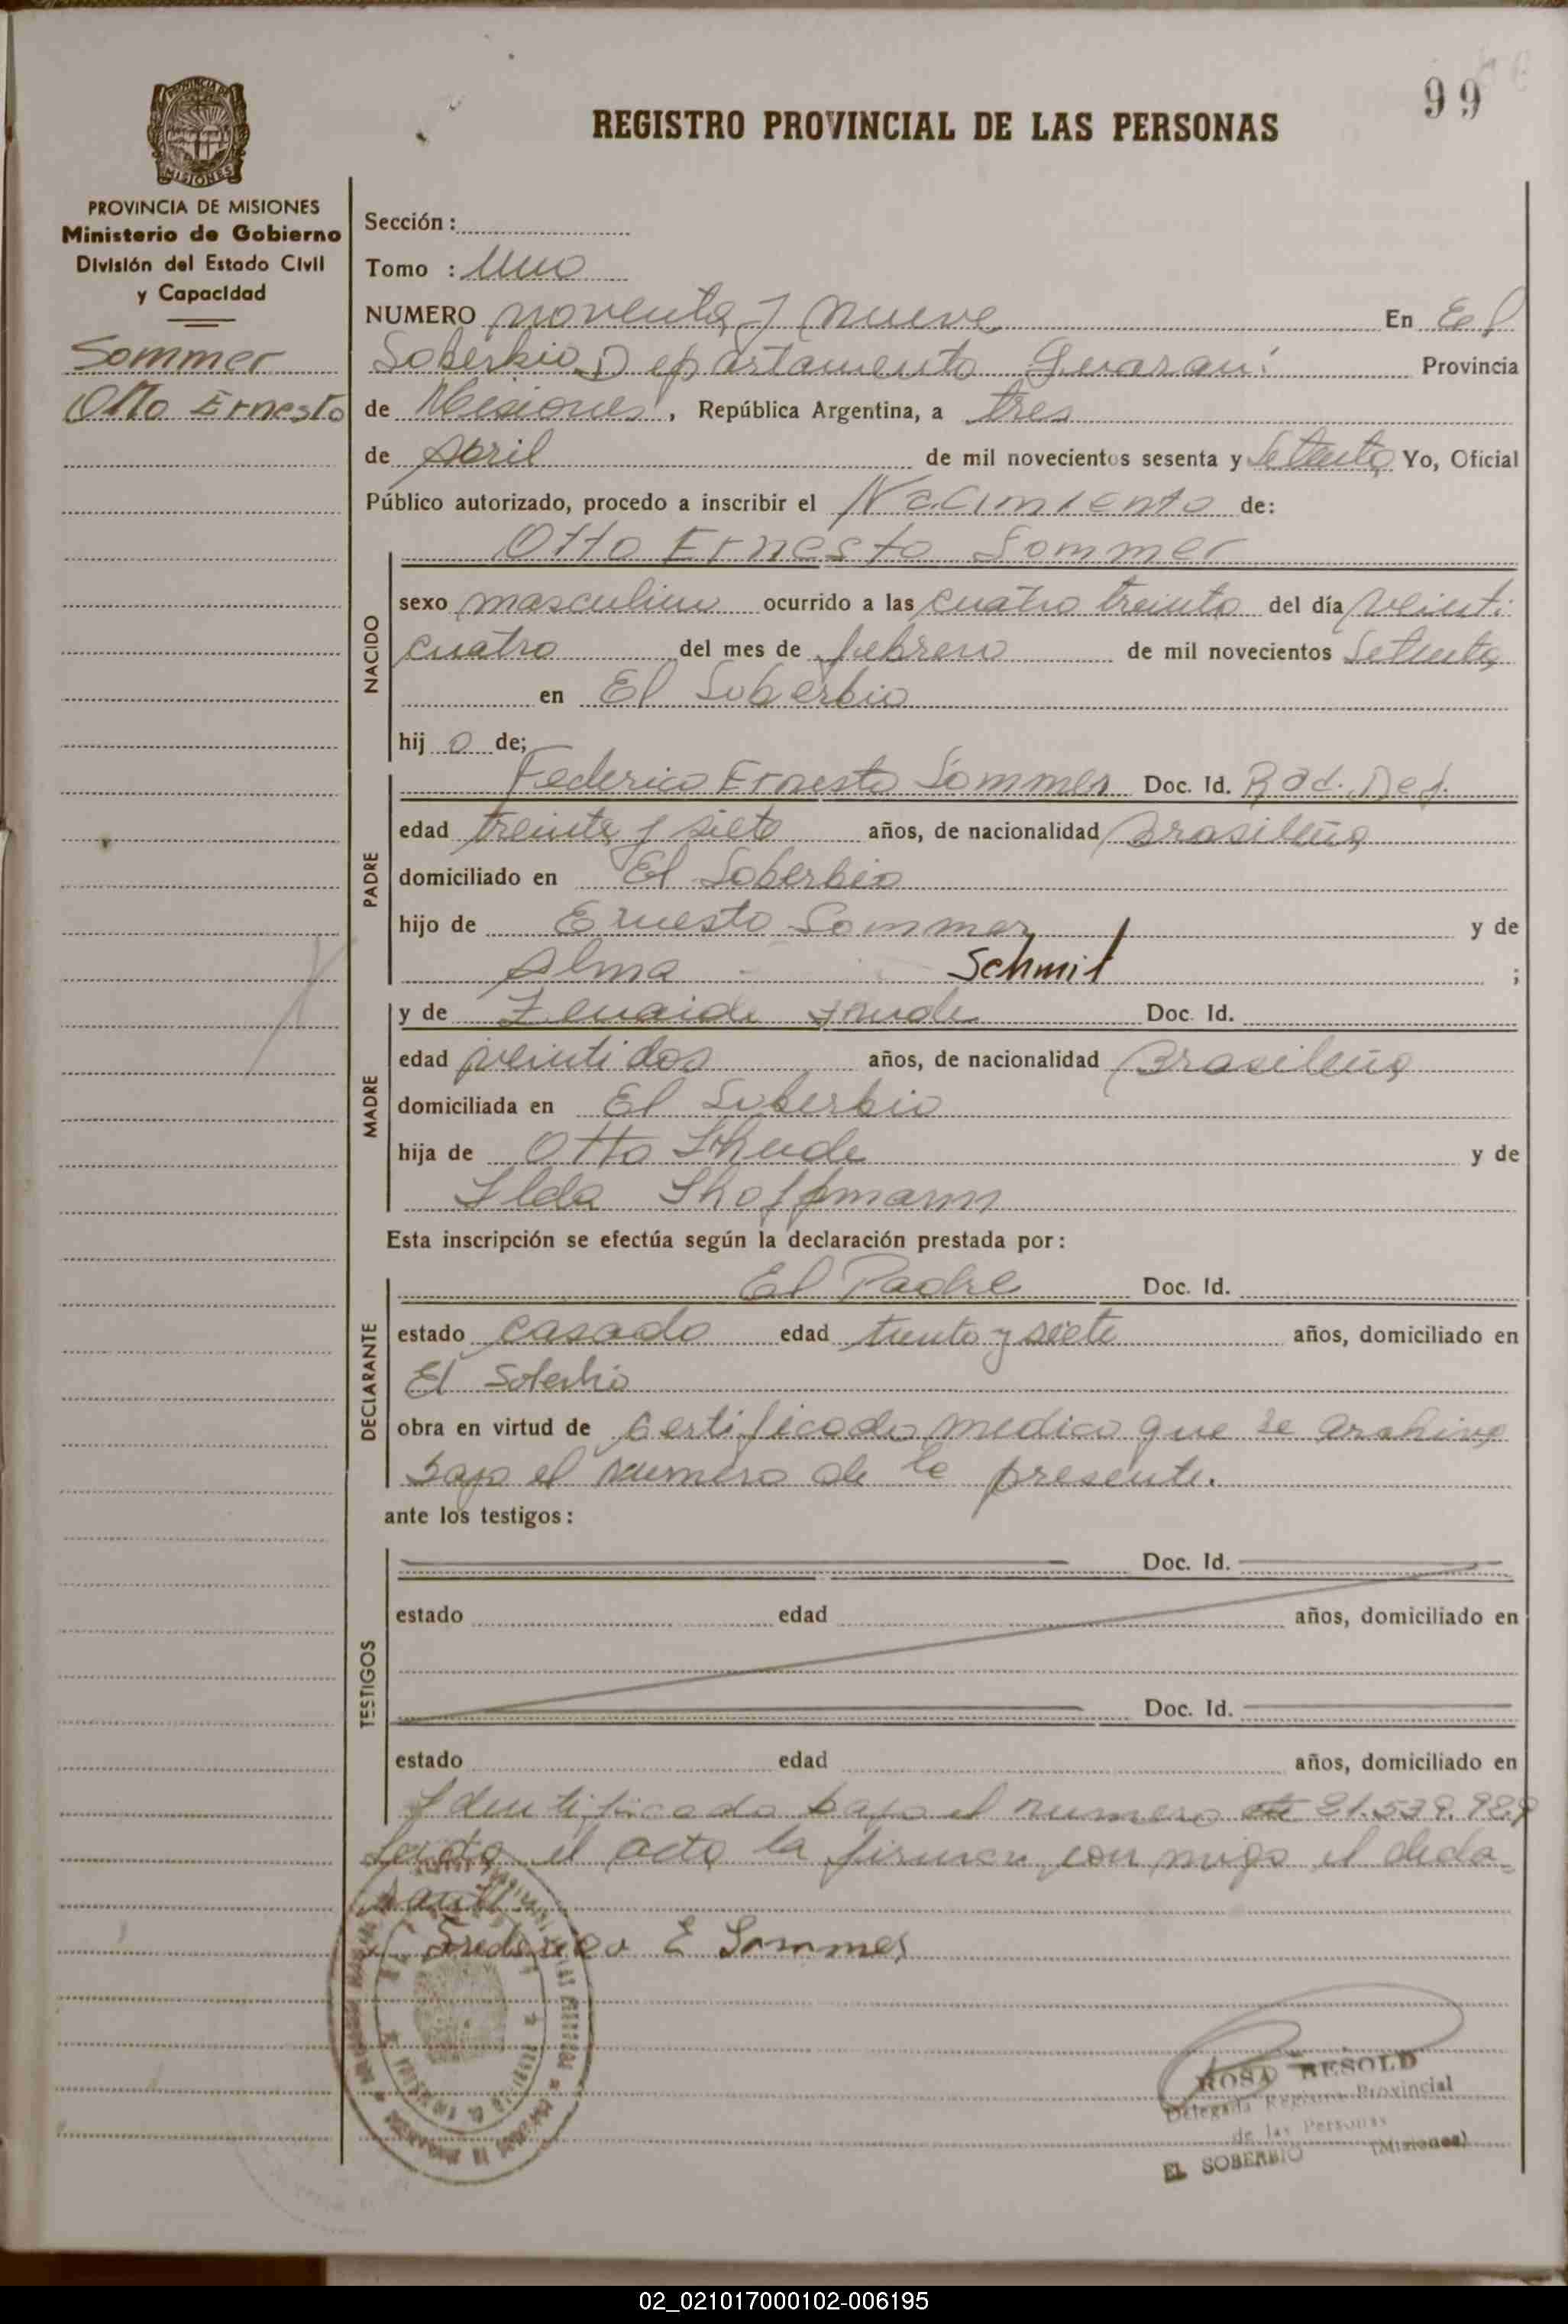 99
REGISTRO PROVINCIAL DE LAS PERSONAS
PROVINCIA DE MISIONES
Ministerio de Gobierno
División del Estado Civil
y Capacidad
Sommer
Otto Ernesto
Sección :
Tomo : Uno
NUMERO noventa y nueve En El
Soberbio, Departamento Guaraní Provincia
de Misiones, República Argentina, a tres
de Abril de mil novecientos sesenta y Setenta Yo, Oficial
Público autorizado, procedo a inscribir el Nacimiento de:
Otto Ernesto Sommer
NACIDO
sexo masculino ocurrido a las cuatro treinta del día veinti
cuatro del mes de febrero de mil novecientos Setenta
en El Soberbio
hij o de;
PADRE
Federico Ernesto Sommer Doc. Id. Rad. Def.
edad treinta y siete años, de nacionalidad Brasileña
domiciliado en El Soberbio
hijo de Ernesto Sommer y de
Alma Schmit ;
MADRE
y de Zenaide Doc. Id.
edad veintidos años, de nacionalidad Brasileña
domiciliada en El Soberbio
hija de Otto y de
Ilda
Esta inscripción se efectúa según la declaración prestada por :
DECLARANTE
El Padre Doc. Id.
estado casado edad treinta y siete años, domiciliado en
El Soberbio
obra en virtud de certificado medico que se archiva
bajo el numero de la presente.
ante los testigos :
TESTIGOS
Doc. Id.
estado edad años, domiciliado en
Doc. Id.
estado edad años, domiciliado en
Identificado bajo el numero 21.539.989
Leida el acta la firman con migo el decla-
rante
Federico E Sommer
ROSA BESOLD
Delegada Registro Provincial
de las Personas
EL SOBERBIO (Misiones)
02_021017000102-006195